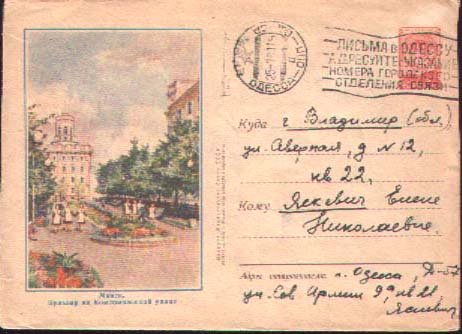 ОДЕССА
ПИСЬМА В ОДЕССУ
АДРЕСУЙТЕ С УКАЗАНИЕМ
НОМЕРА ГОРОДСКОГО
ОТДЕЛЕНИЯ СВЯЗИ
Куда г. Владимир (обл.)
ул. Северная, д № 12,
кв 22,
Кому Яскевич Елене
Николаевне.
Адрес отправителя г. Одесса, Д-57
ул. Сов. Армии 99 кв 21
Яскевич
Минск.
Бульвар на Комсомольской улице